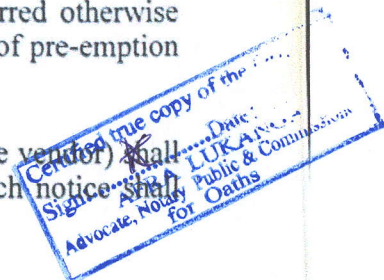 rred otherwise
of pre-emption
e vendor) shall
ch notice shall
Certified true copy of the
Sign:............Date:
LUKA
Advocate, Notary Public & Commission
for Oaths